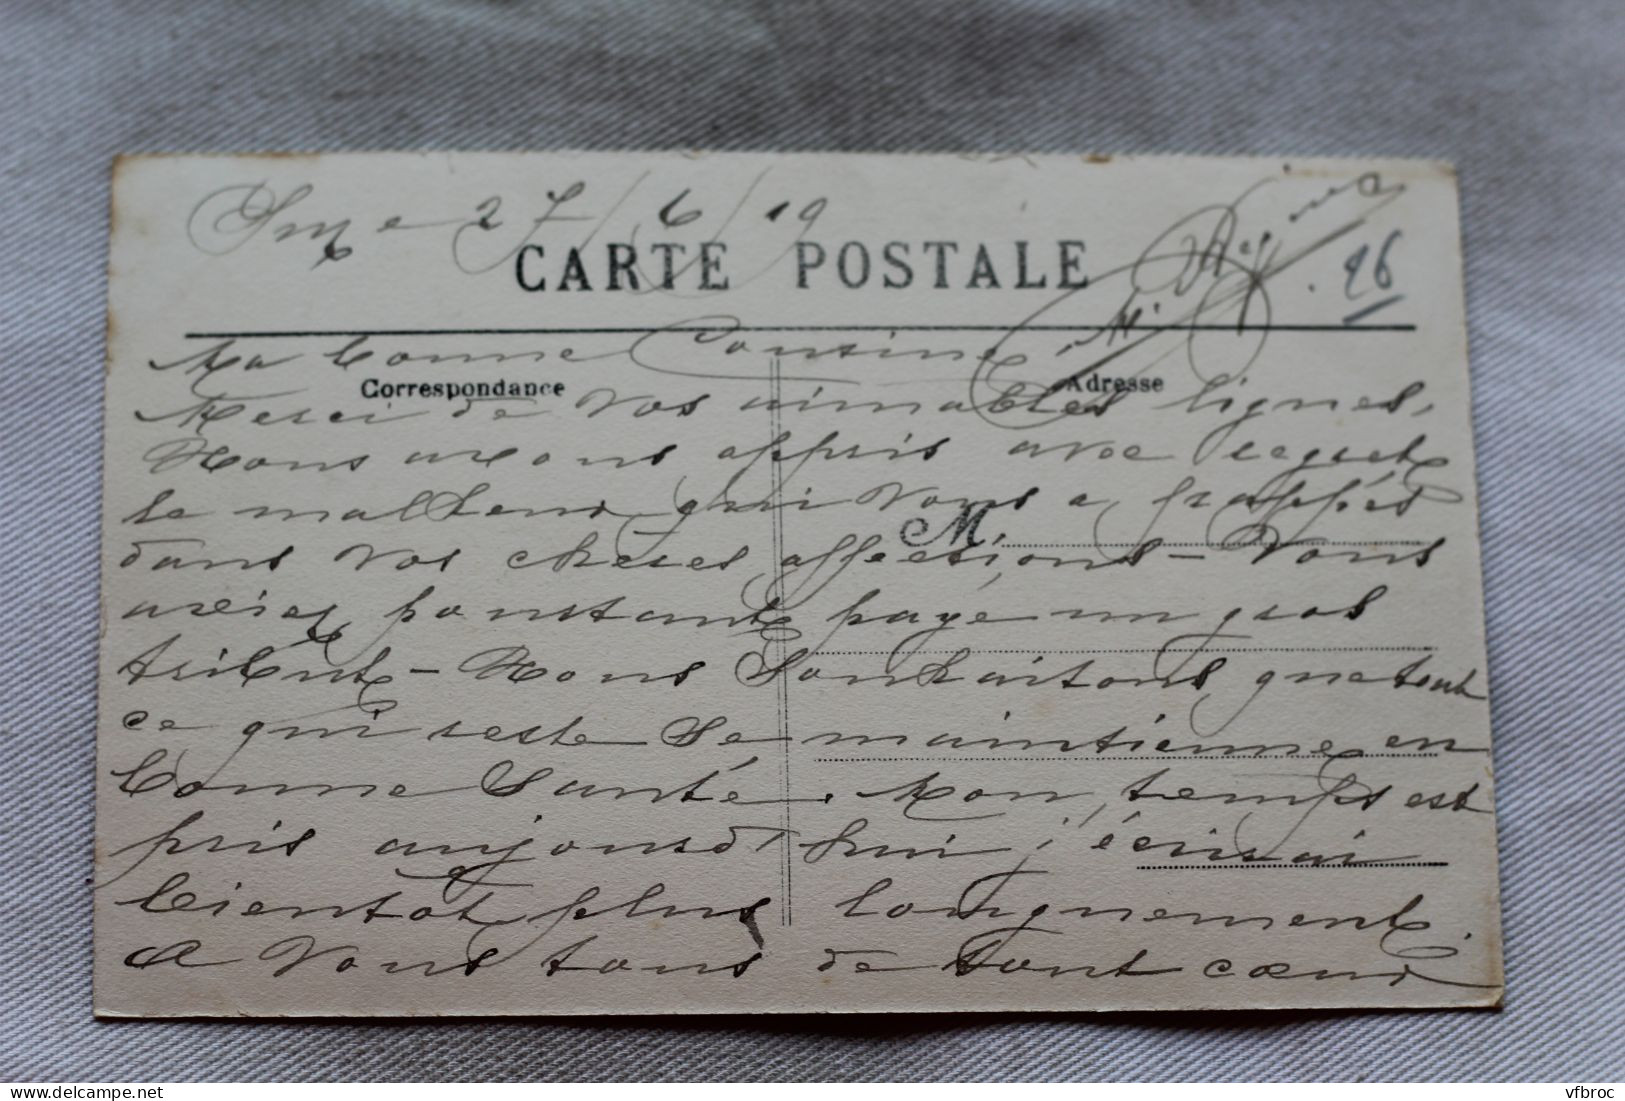 27/6/19
CARTE POSTALE
. 26
Correspondance
Adresse
Ma bonne Cousine
Merci de vos aimables lignes,
Nous avons appris avec regret
le malheur qui vous a frappés
dans vos chères affections – Vous
aviez pourtant payé un gros
tribut – Nous souhaitons que tout
M.
ce qui reste se maintienne en
bonne santé. Mon temps est
pris aujourd'hui j'écrirai
bientôt plus longuement.
A vous tous de tout cœur
M. Regina
www.delcampe.net
vfbroc